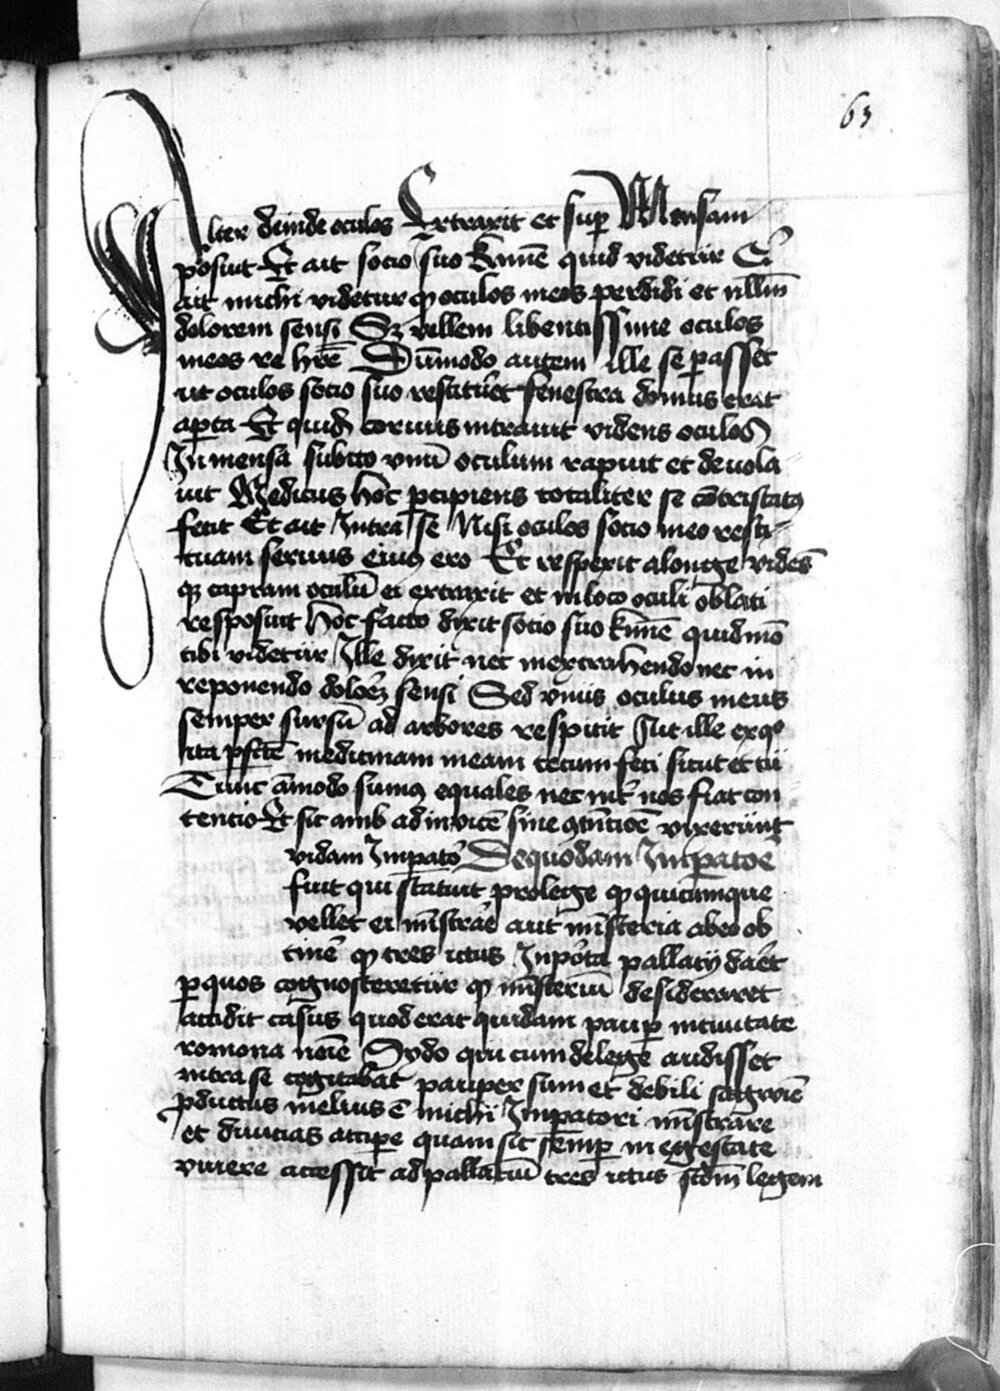 63
Alter deinde oculos Extraxit et sup Mensam
posuit Et ait socio suo Kīme quid videtur Et
ait michi videtur qp oculos meos perdidi et nllm̄
dolorem sensi Sz vellem libentissime oculos
meos re hr̄e Dūmodo autem ille se passet
ut oculos socio suo restituēt fenestra domus erat
apta Et quid corvus intravit videns oculos
In mensa subito vnū oculum rapuit et devola
uit Medicus hoc pcipiens totaliter se cōtristatus
fecit Et ait Intra se Nisi oculos socio meo resti
tuam servus eius ero Et respexit alonge vidēs
qz capram oculū ei extraxit et inloco oculi oblati
resposuit hoc facto dixit socio suo kīme quid mō
tibi videtur Ille dixit nec in extrahendo nec in
reponendo doloēz sensi Sed vnus oculus meus
semper sursū ad arbores respicit Aut ille ex qo
ita pfcte medicinam meam tecum feci sicut et tu
Tunc āmodo sumus equales nec int' nos fiat con
tencio Et sic amb ad invicē sine 9tncōe vixerunt
vidam Impato' De quodam Impatoē
fuit qui statuit pro lege qp quicumque
vellet ei mīstrāe aut mīsteria ab eo ob
tinē qp tres ictus In pōta pallacij daēt
p quos cognosceretur qp mīsteriū desideraret
accidit casus quod erat quidam paup in civitate
romona noīe Gydo qui cum de lege audisset
intra se cogitabat pauper sum et debili
pductus melius ē michi Impatori mīstrare
et divicias accipe quam sic semp in egestate
vivere accessit ad pallaciū tres ictus scdm̄ legem